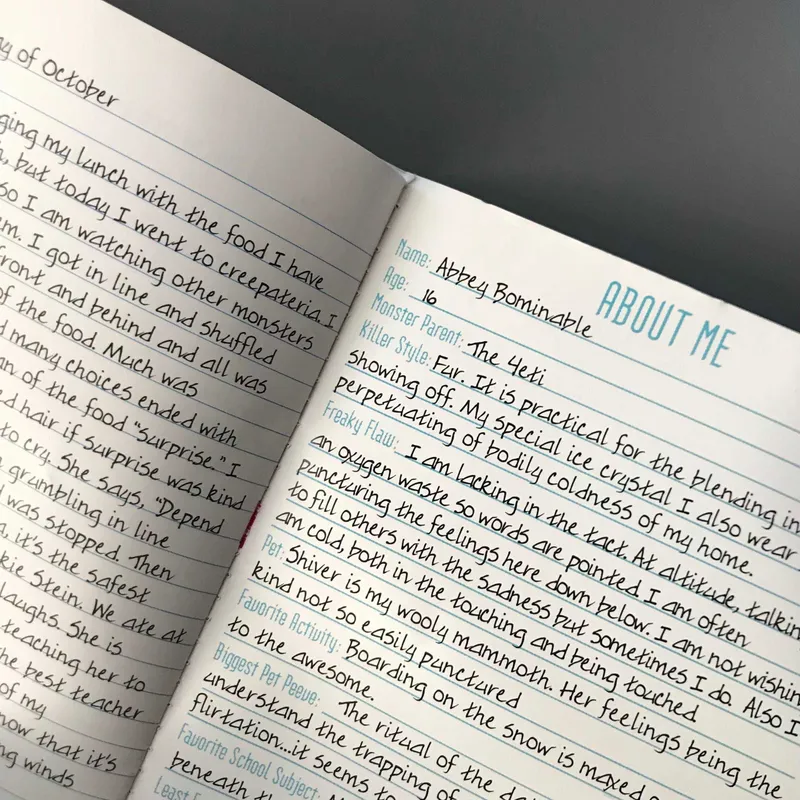 y of October
ging my lunch with the food I have
, but today I went to creepateria. I
so I am watching other monsters
em. I got in line and shuffled
front and behind and all was
of the food. Much was
d many choices ended with
an of the food "Surprise." I
ed hair if surprise was kind
to cry. She says, "Depend
grumbling in line
was stopped. Then
, it's the safest
kie Stein. We ate at
laughs. She is
teaching her to
he best teacher
of my
now that it's
ng winds
ABOUT ME
Name: Abbey Bominable
Age: 16
Monster Parent: The Yeti
Killer Style: Fur. It is practical for the blending in
showing off. My special ice crystal I also wear
perpetuating of bodily coldness of my home.
Freaky Flaw: I am lacking in the tact. At altitude, talkin
an oxygen waste so words are pointed. I am often
puncturing the feelings here down below. I am not wishin
to fill others with the sadness but sometimes I do. Also I
am cold, both in the touching and being touched
Pet: Shiver is my wooly mammoth. Her feelings being the
kind not so easily punctured
Favorite Activity: Boarding on the snow is maxed
to the awesome.
Biggest Pet Peeve: The ritual of the da
understand the trapping of
flirtation...it seems to
Favorite School Subject:
beneath the
Least